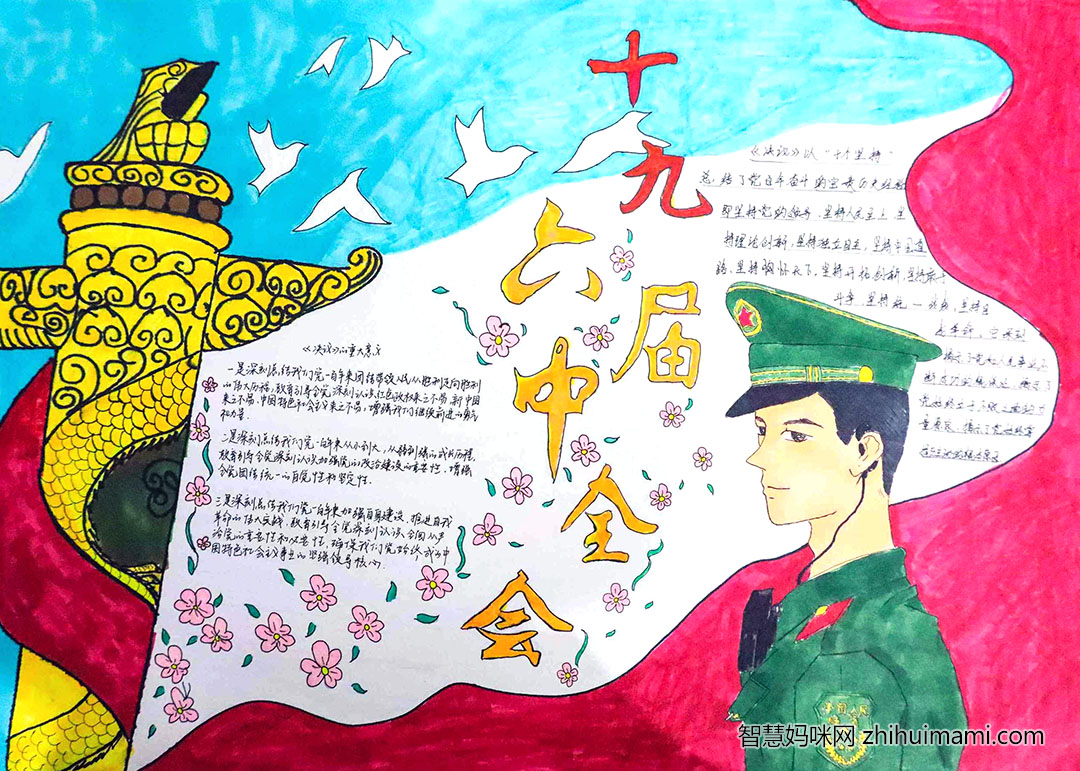 十九届
六中全会
《决议》的重大意义
一是深刻总结我们党一百年来团结带领人民从胜利走向胜利
的伟大历程，教育引导全党深刻认识红色政权来之不易，新中国
来之不易，中国特色社会主义来之不易，增强我们继续前进的勇气
和力量。
二是深刻总结我们党一百年来从小到大，从弱到强的成长历程，
教育引导全党深刻认识加强党的政治建设的重要性，增强
全党团结统一的自觉性和坚定性。
三是深刻总结我们党一百年来加强自身建设、推进自我
革命的伟大实践，教育引导全党深刻认识全面从严
治党的重要性和必要性，确保我们党始终成为中
国特色社会主义事业的坚强领导核心。
《决议》以"十个坚持"
总结了党百年奋斗的宝贵历史经验
即坚持党的领导，坚持人民至上，坚
持理论创新，坚持独立自主，坚持中国道
路，坚持胸怀天下，坚持开拓创新，坚持敢于
斗争，坚持统一战线，坚持自
我革命，
揭示了党和人民事业不
断成功的
智慧妈咪网 zhihuimami.com